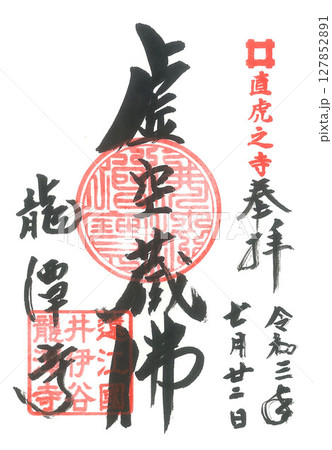 直虎之寺
奉拝
令和三年
七月廿二日
虚空蔵佛
龍潭寺
遠江國
井伊谷
龍潭寺
127852891